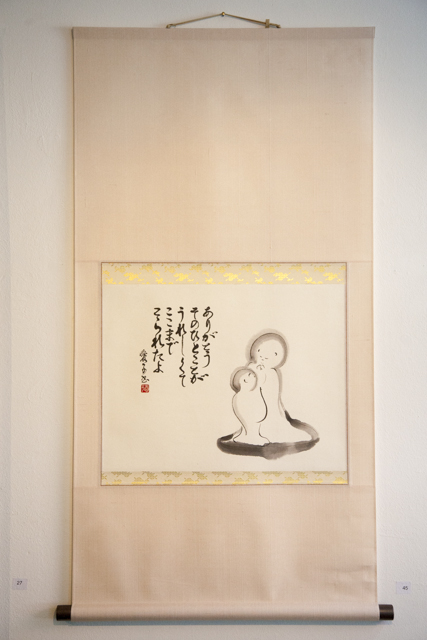 ありがとう
そのひとことが
うれしくて
ここまで
こられたよ
27